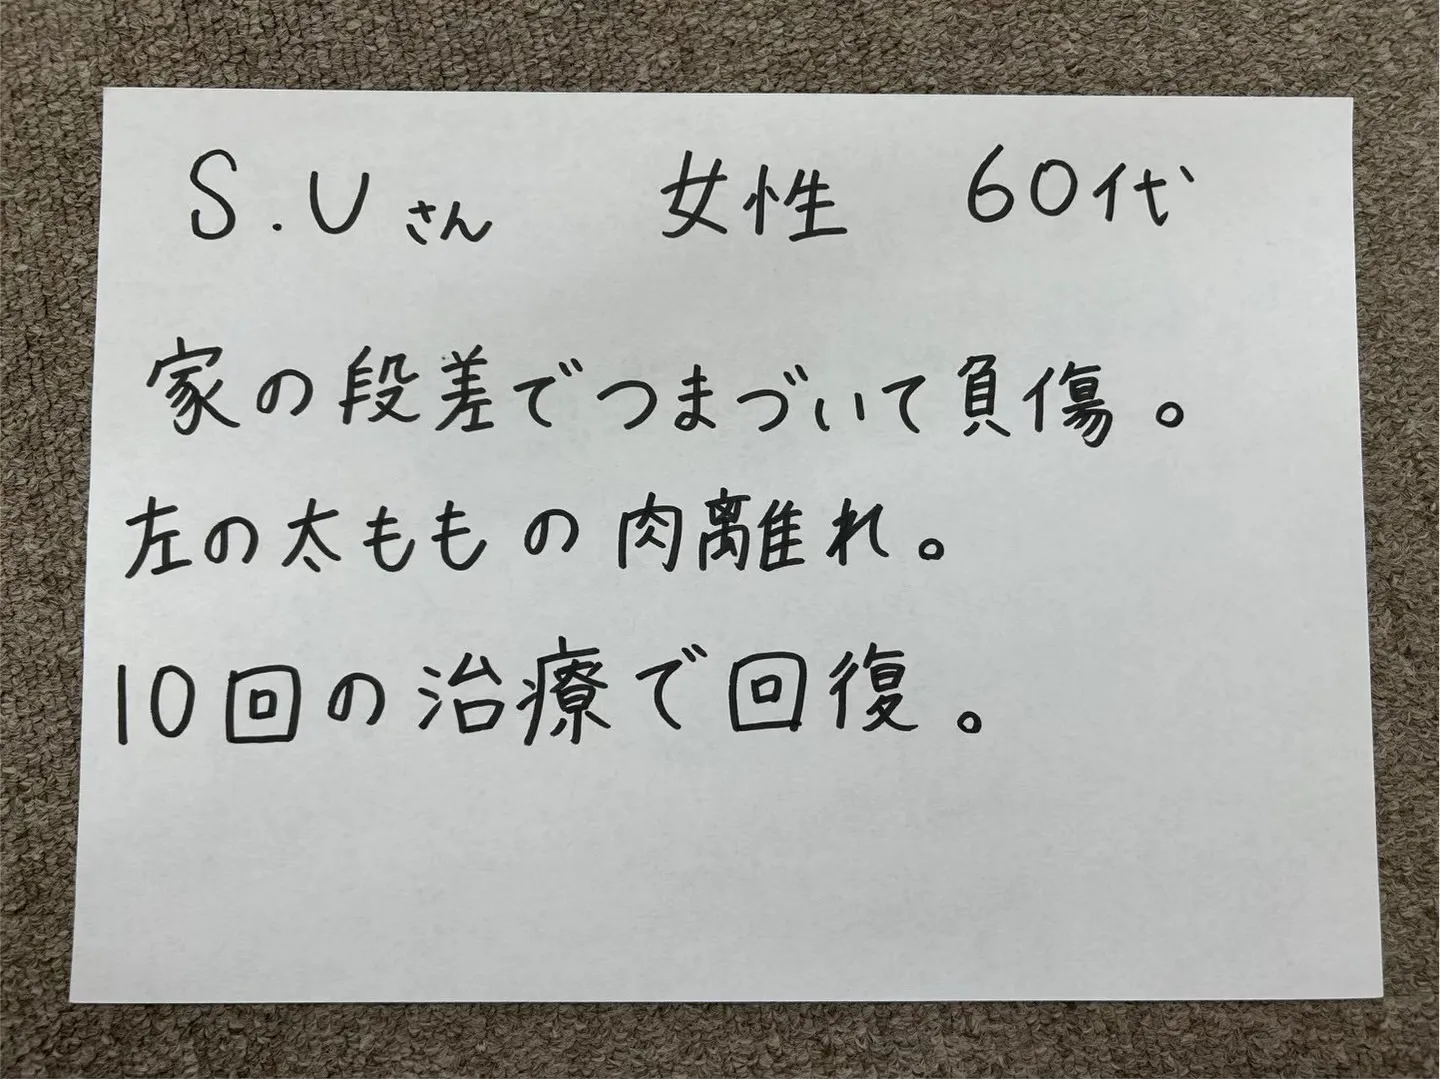 S.Uさん 女性 60代
家の段差でつまづいて負傷。
左の太ももの肉離れ。
10回の治療で回復。